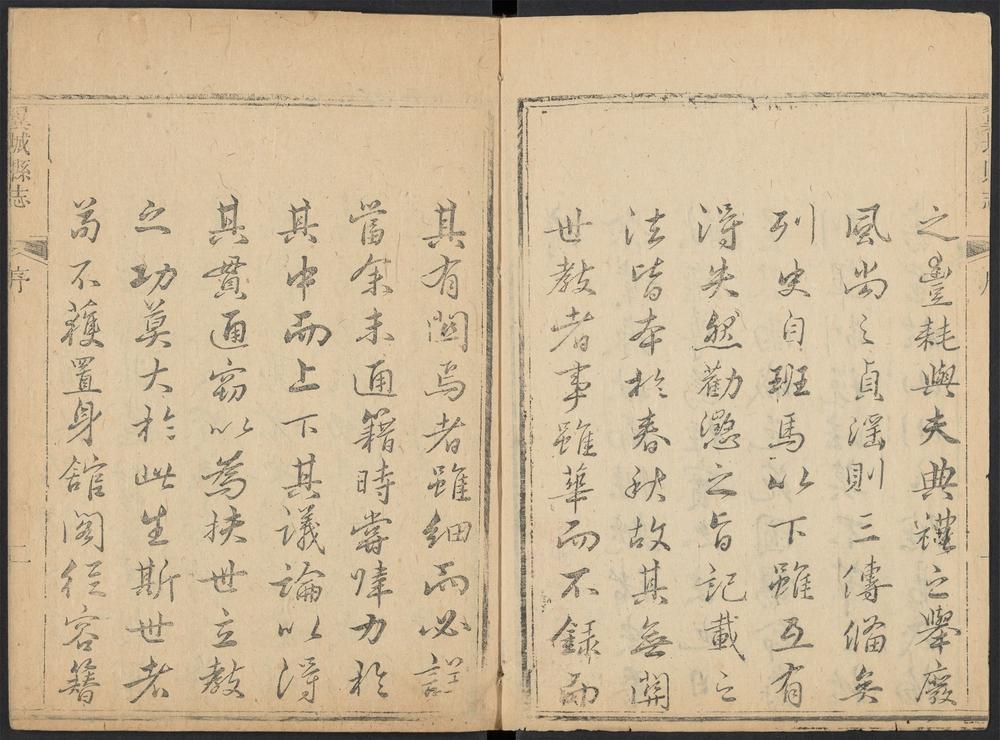 之豐耗與夫典禮之舉廢
風尚之貞淫則三傳備矣
列史自班馬以下雖互有
得失然勸懲之旨記載之
法皆本於春秋故其無關
世教者事雖華而不錄而
其有關焉者雖細而必詳
當余未通籍時嘗肆力於
其中而上下其議論以得
其貫通竊以為扶世立教
之功莫大於此生斯世者
苟不獲置身館閣從容簪
翼城縣志
序
二